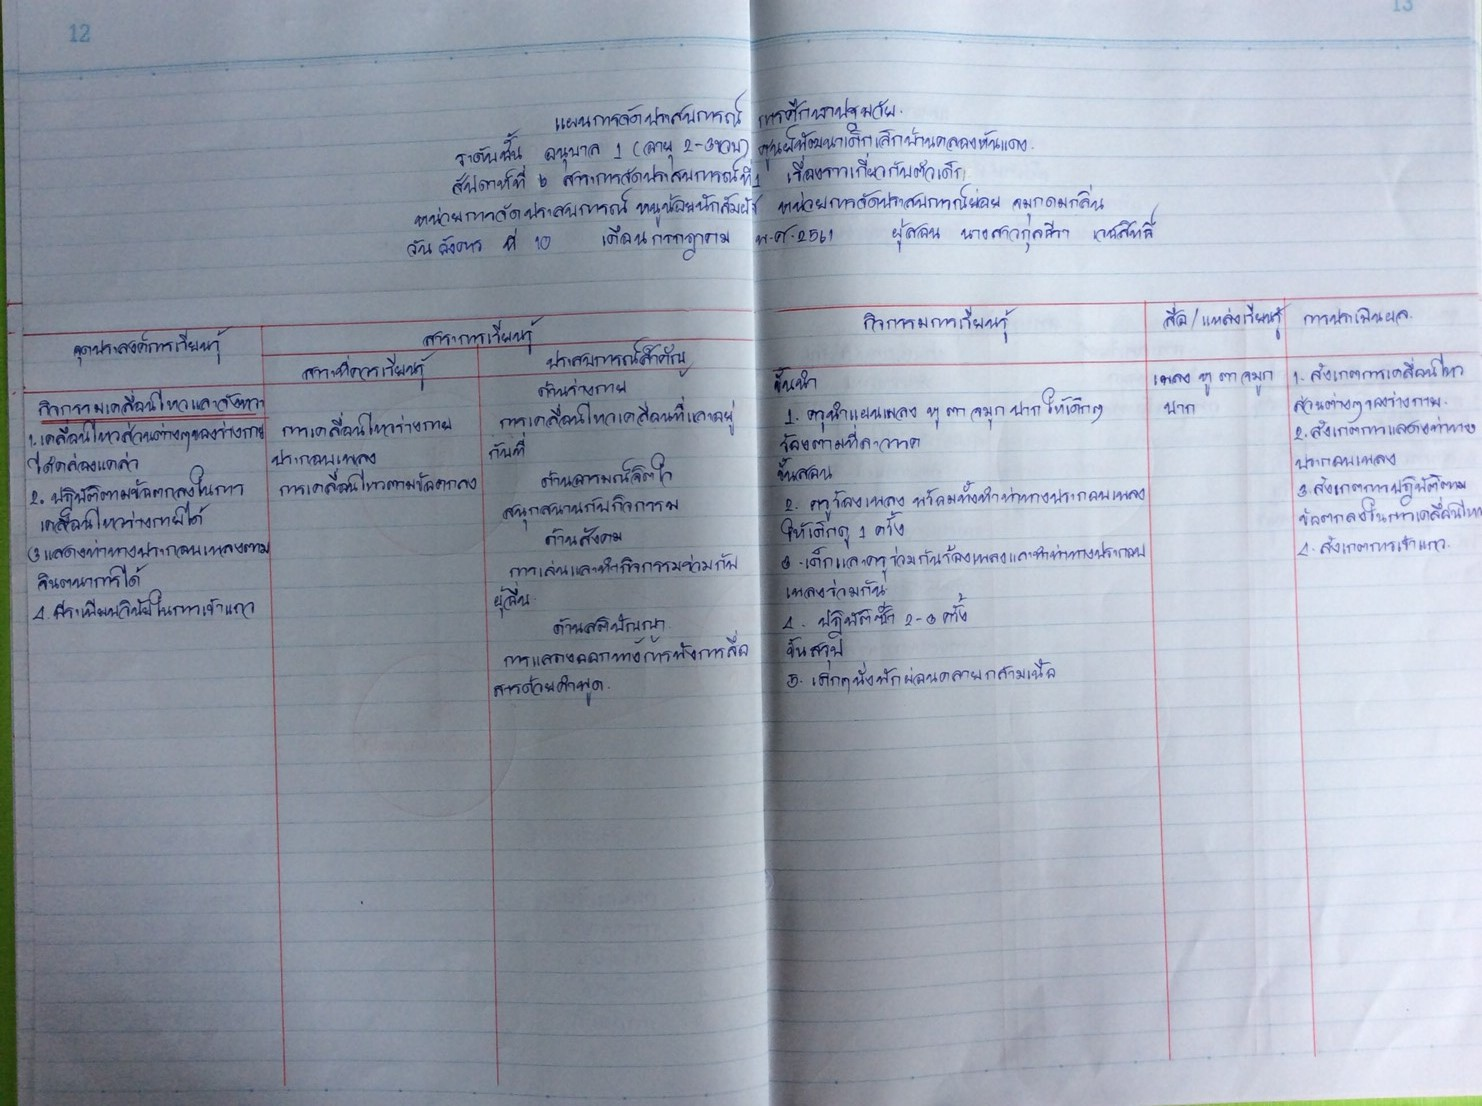 12
13
แผนการจัดประสบการณ์ การศึกษาปฐมวัย.
ระดับชั้น อนุบาล 1 (อายุ 2-3ขวบ) ศูนย์พัฒนาเด็กเล็กบ้านคลองหันแดง.
สัปดาห์ที่ ๖ สาระการจัดประสบการณ์ที่ 1 เรื่องราวเกี่ยวกับตัวเด็ก
หน่วยการจัดประสบการณ์ หนูน้อยนักสัมผัส หน่วยการจัดประสบการณ์ย่อย จมูกดมกลิ่น
วัน อังคาร ที่ 10 เดือน กรกฎาคม พ.ศ.2561 ผู้สอน นางสาว
จุดประสงค์การเรียนรู้
สาระการเรียนรู้
กิจกรรมการเรียนรู้
สื่อ/แหล่งเรียนรู้
การประเมินผล.
สาระที่ควรเรียนรู้
ประสบการณ์สำคัญ
กิจกรรมเคลื่อนไหวและจังหวะ
1. เคลื่อนไหวส่วนต่างๆของร่างกาย
ได้คล่องแคล่ว
2. ปฏิบัติตามข้อตกลงในการ
เคลื่อนไหวร่างกายได้
3 แสดงท่าทางประกอบเพลงตาม
จินตนาการได้
4. มีระเบียบวินัยในการเข้าแถว
การเคลื่อนไหวร่างกาย
ประกอบเพลง
การเคลื่อนไหวตามข้อตกลง
ด้านร่างกาย
การเคลื่อนไหวเคลื่อนที่และอยู่
กับที่
ด้านอารมณ์จิตใจ
สนุกสนานกับกิจกรรม
ด้านสังคม
การเล่นและทำกิจกรรมร่วมกับ
ผู้อื่น.
ด้านสติปัญญา.
การแสดงออกทางการฟังการสื่อ
สารด้วยคำพูด.
ขั้นนำ
1. ครูนำแผนเพลง หู ตา จมูก ปาก ให้เด็กๆ
ร้องตามทีละวรรค
ขั้นสอน
2. ครูร้องเพลง พร้อมทั้งทำท่าทางประกอบเพลง
ให้เด็กดู 1 ครั้ง
3. เด็กและครูร่วมกันร้องเพลงและทำท่าทางประกอบ
เพลงร่วมกัน
4. ปฏิบัติซ้ำ 2-3 ครั้ง
ขั้นสรุป
5. เด็กๆนั่งพักผ่อนคลายกล้ามเนื้อ
เพลง หู ตา จมูก
ปาก
1. สังเกตการเคลื่อนไหว
ส่วนต่างๆของร่างกาย.
2. สังเกตการแสดงท่าทาง
ประกอบเพลง
3. สังเกตการปฏิบัติตาม
ข้อตกลงในการเคลื่อนไหว
4. สังเกตการเข้าแถว.